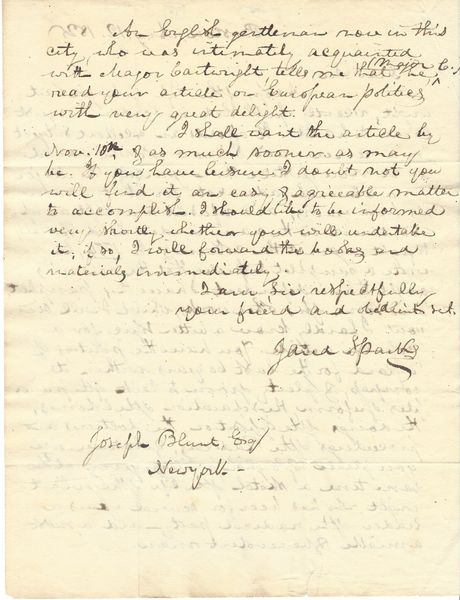 An English gentleman now in this
city, who was intimately acquainted
with Major Cartwright tells me that he (Major C.)
read your article on European politics
with very great delight.
I shall want the article by
Nov. 10th, & as much sooner as may
be. If you have leisure, I doubt not you
will find it an easy & agreeable matter
to accomplish. I should like to be informed
very shortly, whether you will undertake
it; if so, I will forward the books and
materials immediately.
I am, Sir, respectfully
your friend and obedient set.
Jared Sparks
Joseph Blunt, Esq
New york -